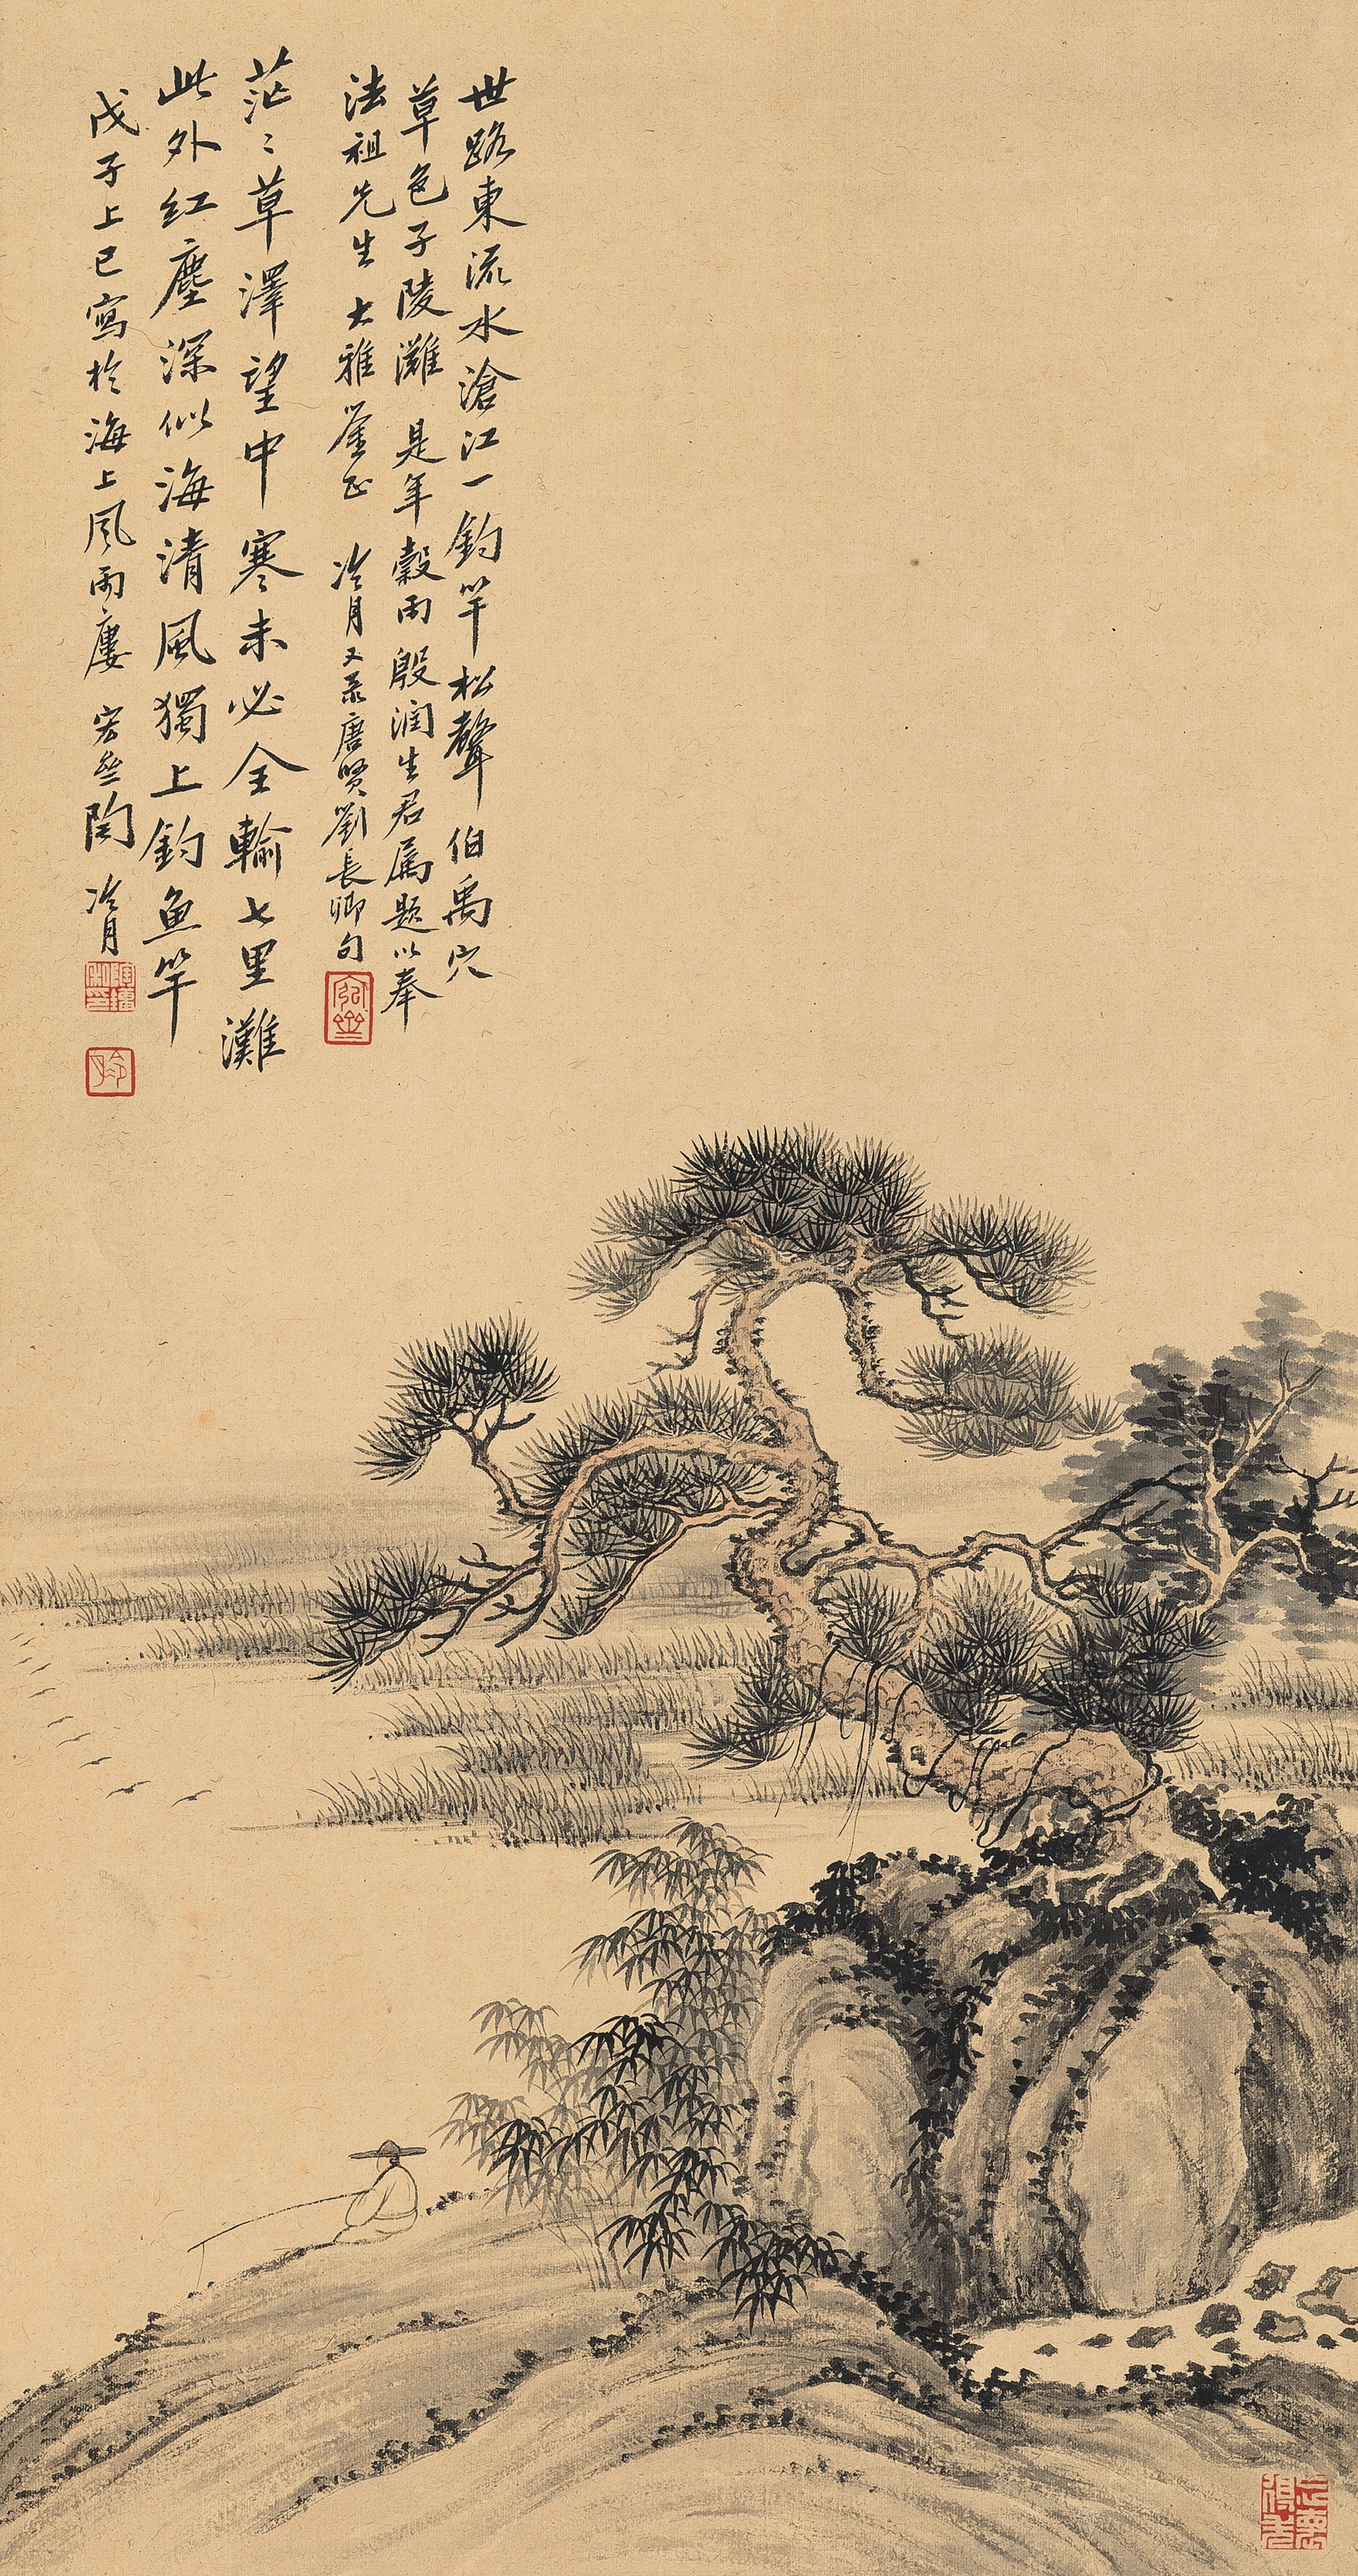 世路東流水滄江一釣竿松聲伯禹穴
草色子陵灘 是年穀雨殷潤生君属題以奉
法祖先生大雅鑒正 冷月又录唐賢劉長卿句
茫〻草澤望中寒未必全輸七里灘
此外红塵深似海清風獨上釣魚竿
戊子上巳寫於海上風雨廔 宏斋陶冷月
冷月